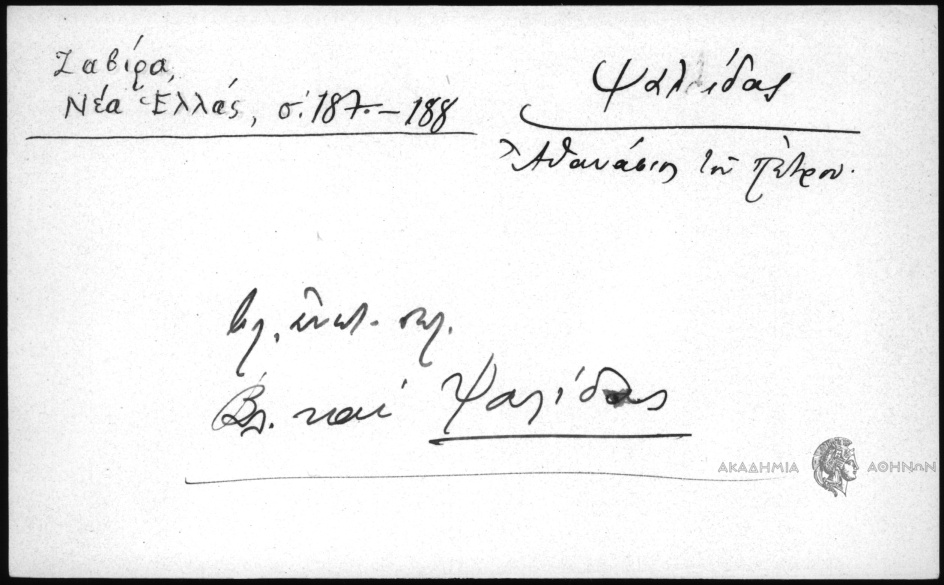 Ζαβίρα,
Νέα Ἑλλάς, σ. 187.-188
Ψαλίδας
Ἀθανάσιος τοῦ Πέτρου.
Βλ. καί Ψαλίδας
ΑΚΑΔΗΜΙΑ ΑΘΗΝΩΝ